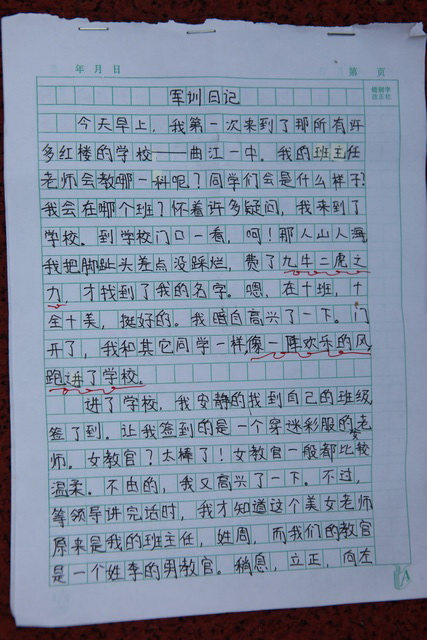 年 月 日 第 页
军训日记
今天早上，我第一次来到了那所有许
多红楼的学校——曲江一中。我的班主任
老师会教哪一科呢？同学们会是什么样子？
我会在哪个班？怀着许多疑问，我来到了
学校。到学校门口一看，呵！那人山人海
我把脚趾头差点没踩烂，费了九牛二虎之
力，才找到了我的名字。嗯，在十班，十
全十美，挺好的。我暗自高兴了一下。门
开了，我和其它同学一样，像一阵欢乐的风
跑进了学校。
进了学校，我安静的找到自己的班级
签了到。让我签到的是一个穿迷彩服的老
师。女教官？太棒了！女教官一般都比较
温柔。不由的，我又高兴了一下。不过，
等领导讲完话时，我才知道这个美女老师
原来是我的班主任，姓周，而我们的教官
是一个姓李的男教官。稍息，立正，向左